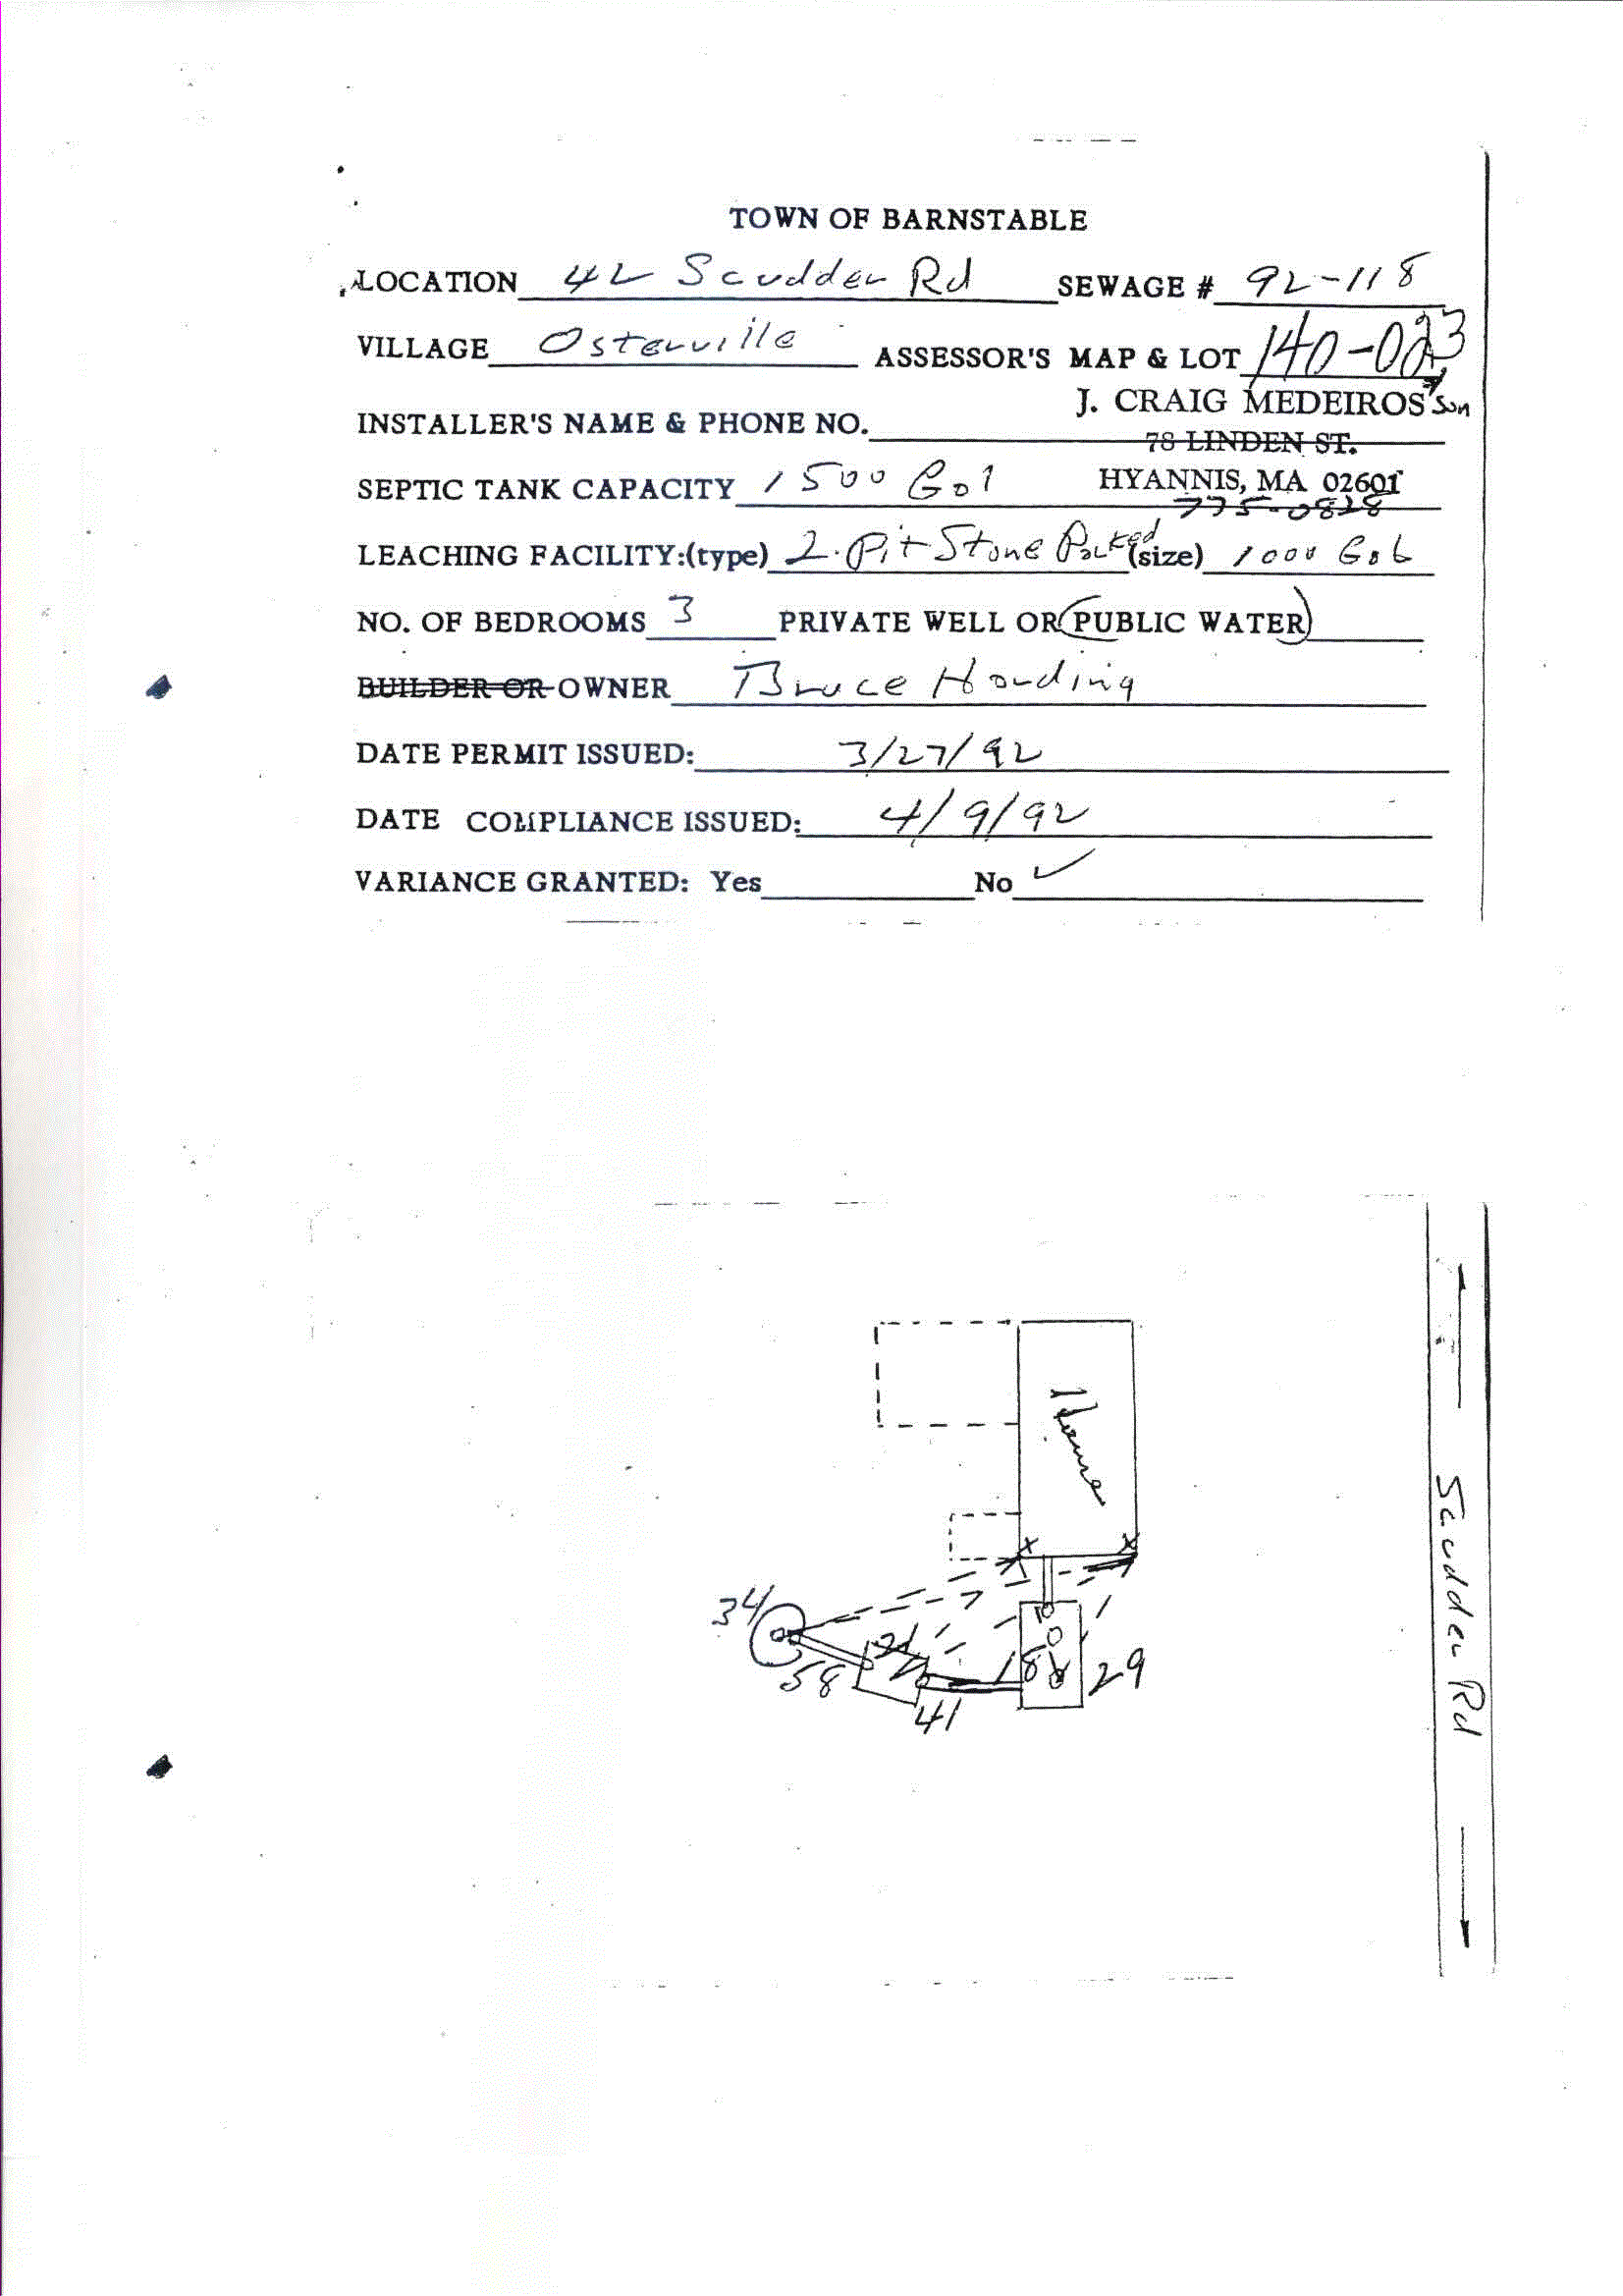 TOWN OF BARNSTABLE
LOCATION 42 Scudder Rd SEWAGE # 92-118
VILLAGE Osterville ASSESSOR'S MAP & LOT 140-023
J. CRAIG MEDEIROS & Son
INSTALLER'S NAME & PHONE NO.
78 LINDEN ST.
SEPTIC TANK CAPACITY 1500 Gal HYANNIS, MA 02601
775-0828
LEACHING FACILITY:(type) 2. Pit Stone Packed (size) 1000 Gal
NO. OF BEDROOMS 3 PRIVATE WELL OR PUBLIC WATER
BUILDER OR OWNER Bruce Harding
DATE PERMIT ISSUED: 3/27/92
DATE COMPLIANCE ISSUED: 4/9/92
VARIANCE GRANTED: Yes No ✓
House
Scudder Rd
34
18
29
58
41